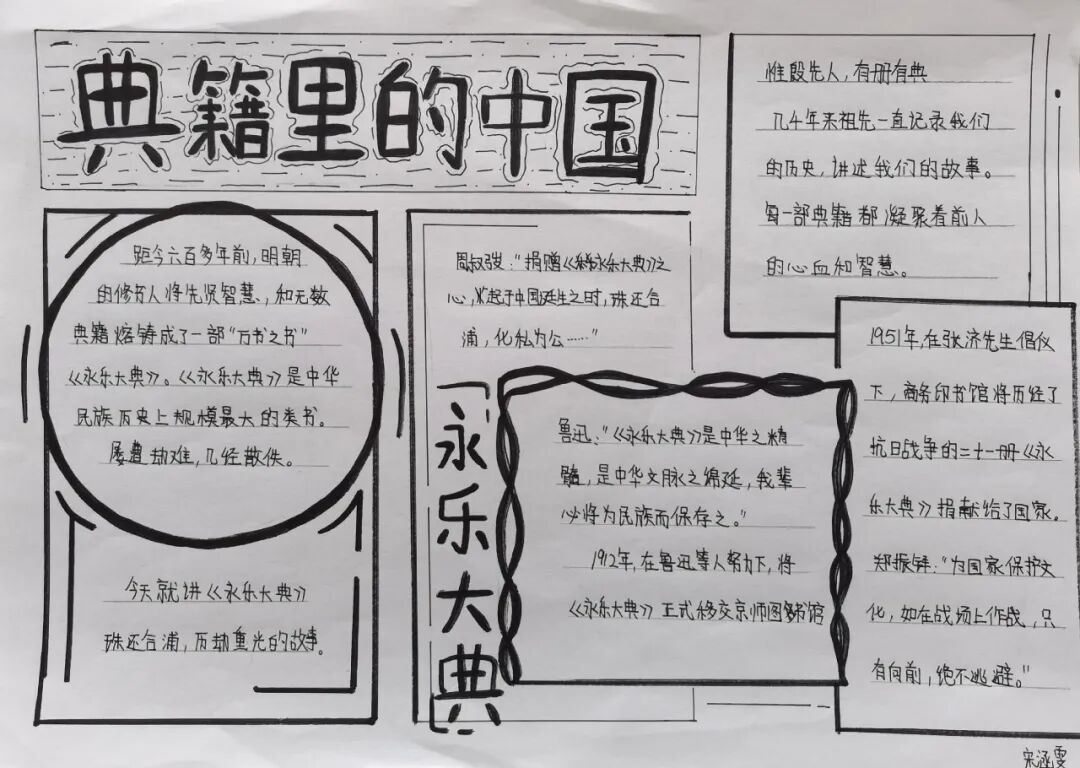 典籍里的中国
惟殷先人，有册有典
几千年来祖先一直记录我们
的历史，讲述我们的故事。
每一部典籍都凝聚着前人
的心血和智慧。
距今六百多年前，明朝
的修书人将先贤智慧，和无数
典籍熔铸成了一部“万书之书”
《永乐大典》。《永乐大典》是中华
民族历史上规模最大的类书。
屡遭劫难，几经散佚。
今天就讲《永乐大典》
珠还合浦，历劫重光的故事。
周叔弢：“捐赠《永乐大典》之
心，起于中国诞生之时，珠还合
浦，化私为公……”
永乐大典
鲁迅：“《永乐大典》是中华之精
髓，是中华文脉之绵延，我辈
必将为民族而保存之。”
1912年，在鲁迅等人努力下，将
《永乐大典》正式移交京师图书馆
1951年，在张济先生倡仪
下，商务印书馆将历经了
抗日战争的二十一册《永
乐大典》捐献给了国家。
郑振铎：“为国家保护文
化，如在战场上作战，只
有向前，绝不逃避。”
宋涵雯